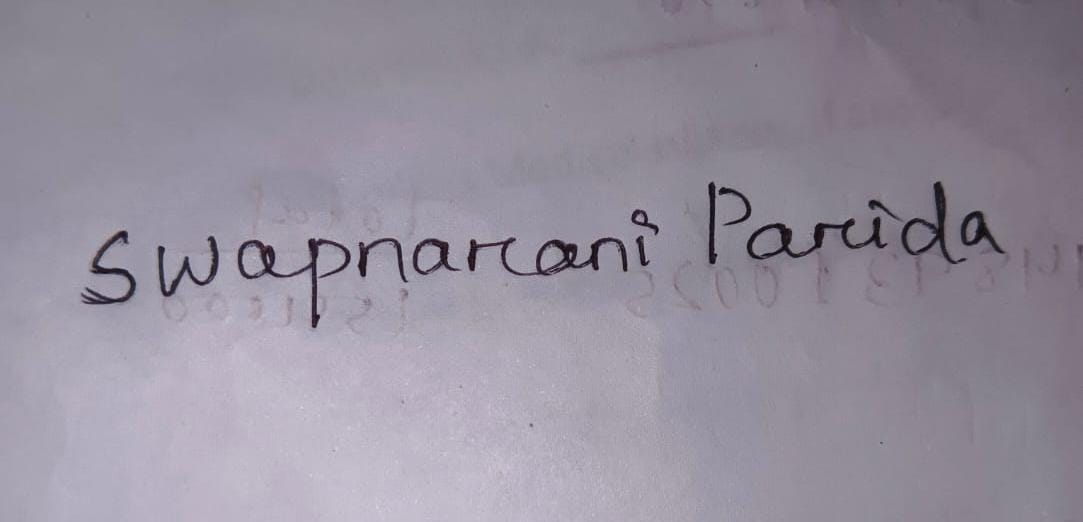 Swapnarani Parida